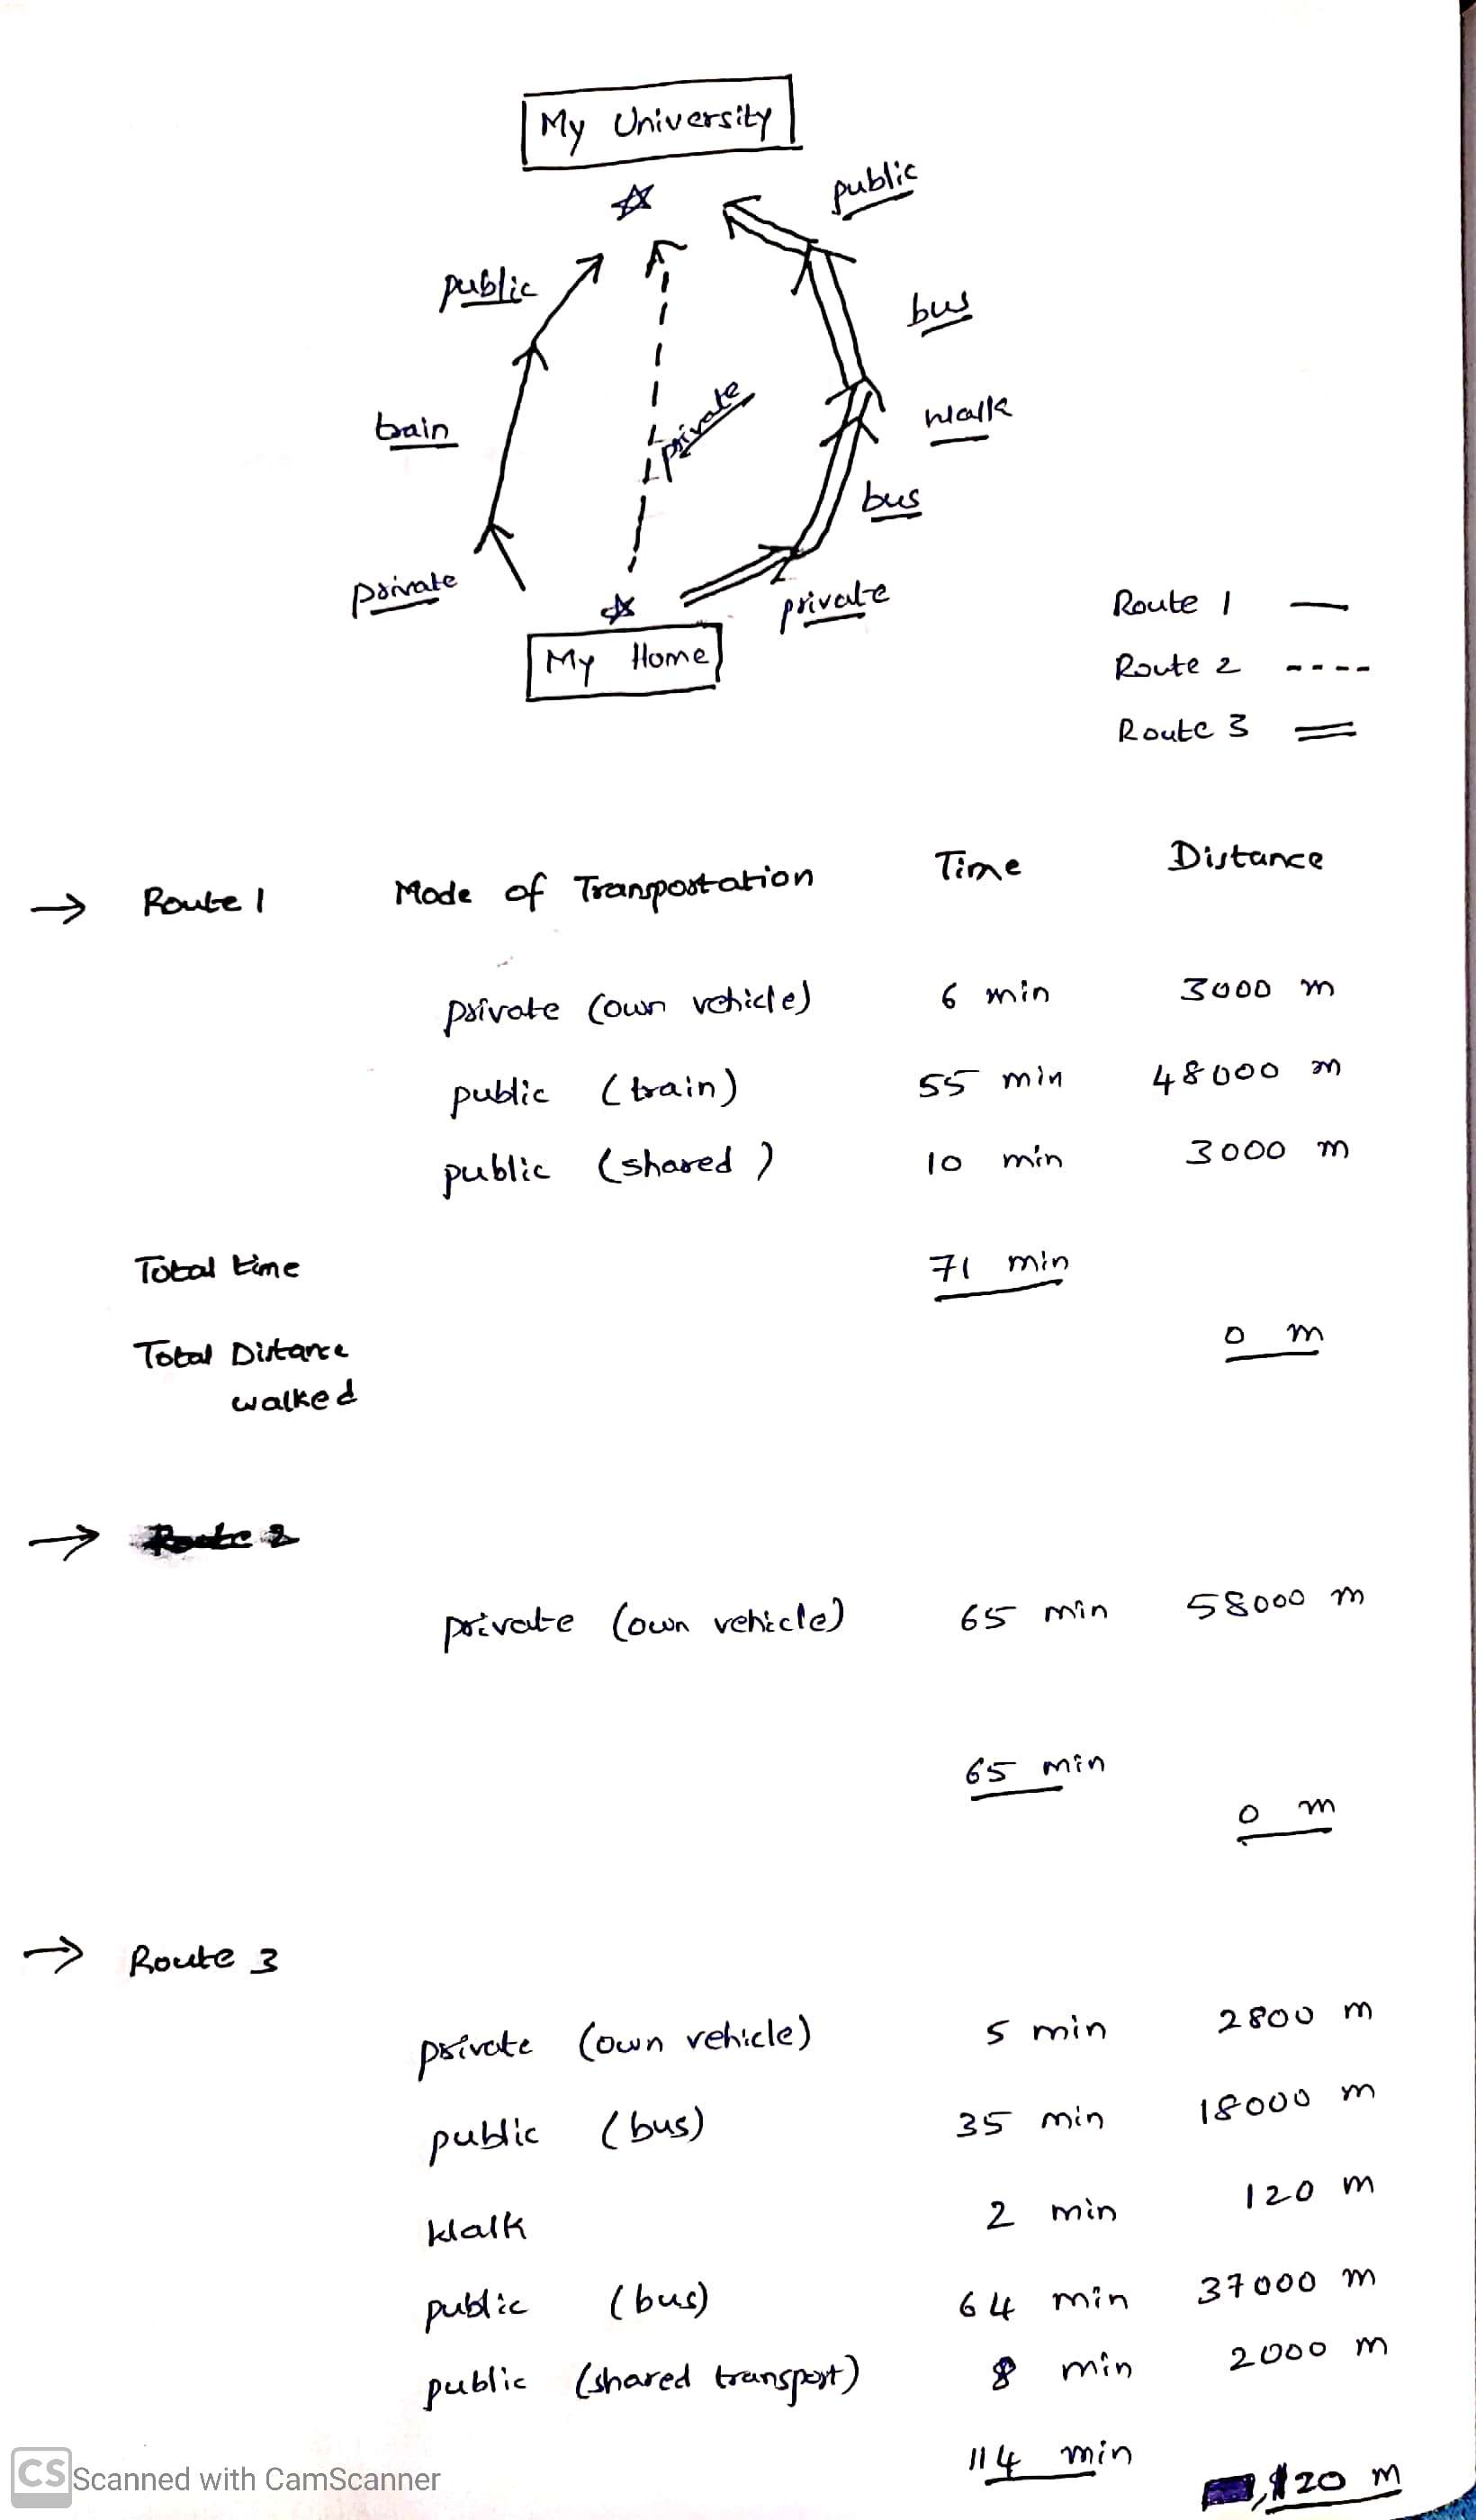 My University
public
public
bus
train
private
walk
bus
private
private
My Home
Route 1
Route 2
Route 3
→ Route 1 Mode of Transportation Time Distance
private (own vehicle) 6 min 3000 m
public (train) 55 min 48000 m
public (shared) 10 min 3000 m
Total time 71 min
Total Distance 0 m
walked
→ Route 2
private (own vehicle) 65 min 58000 m
65 min
0 m
→ Route 3
private (own vehicle) 5 min 2800 m
public (bus) 35 min 18000 m
Walk 2 min 120 m
public (bus) 64 min 37000 m
public (shared transport) 8 min 2000 m
114 min
120 m
CS Scanned with CamScanner